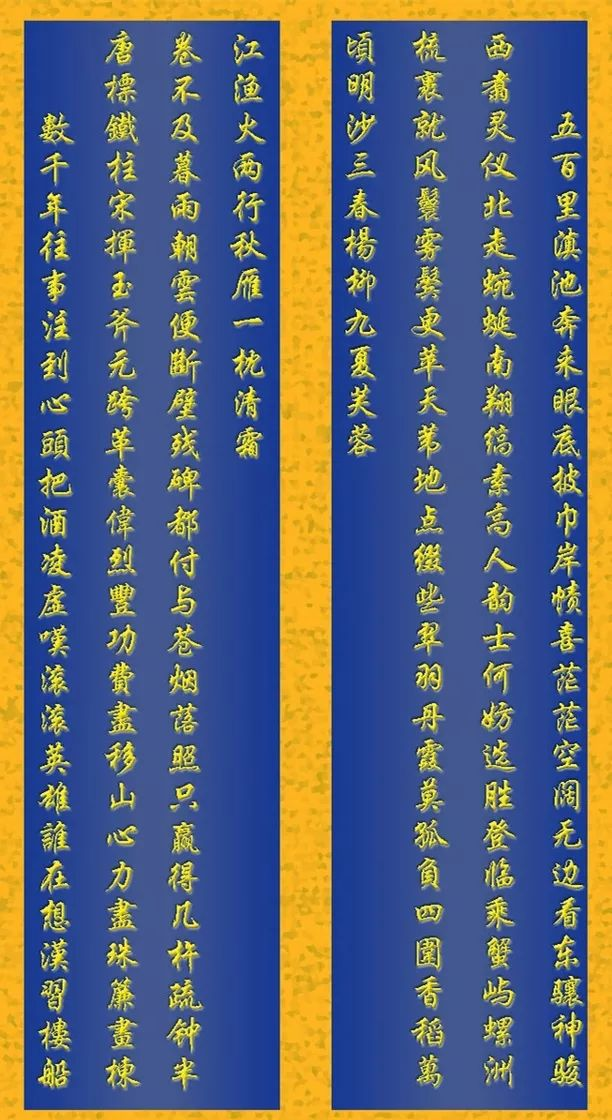 五百里滇池奔来眼底披巾岸帻喜茫茫空阔无边看东骧神骏
西翥灵仪北走蜿蜒南翔缟素高人韵士何妨选胜登临乘蟹屿螺洲
梳裹就风鬟雾鬓更苹天苇地点缀些翠羽丹霞莫孤負四圍香稻萬
頃明沙三春楊柳九夏芙蓉
數千年往事注到心頭把酒凌虚嘆滚滚英雄誰在想漢習樓船
唐標鐵柱宋揮玉斧元跨革囊偉烈豐功費盡移山心力盡珠簾畫棟
卷不及暮雨朝雲便斷壁残碑都付与苍烟落照只赢得几杵疏钟半
江渔火两行秋雁一枕清霜